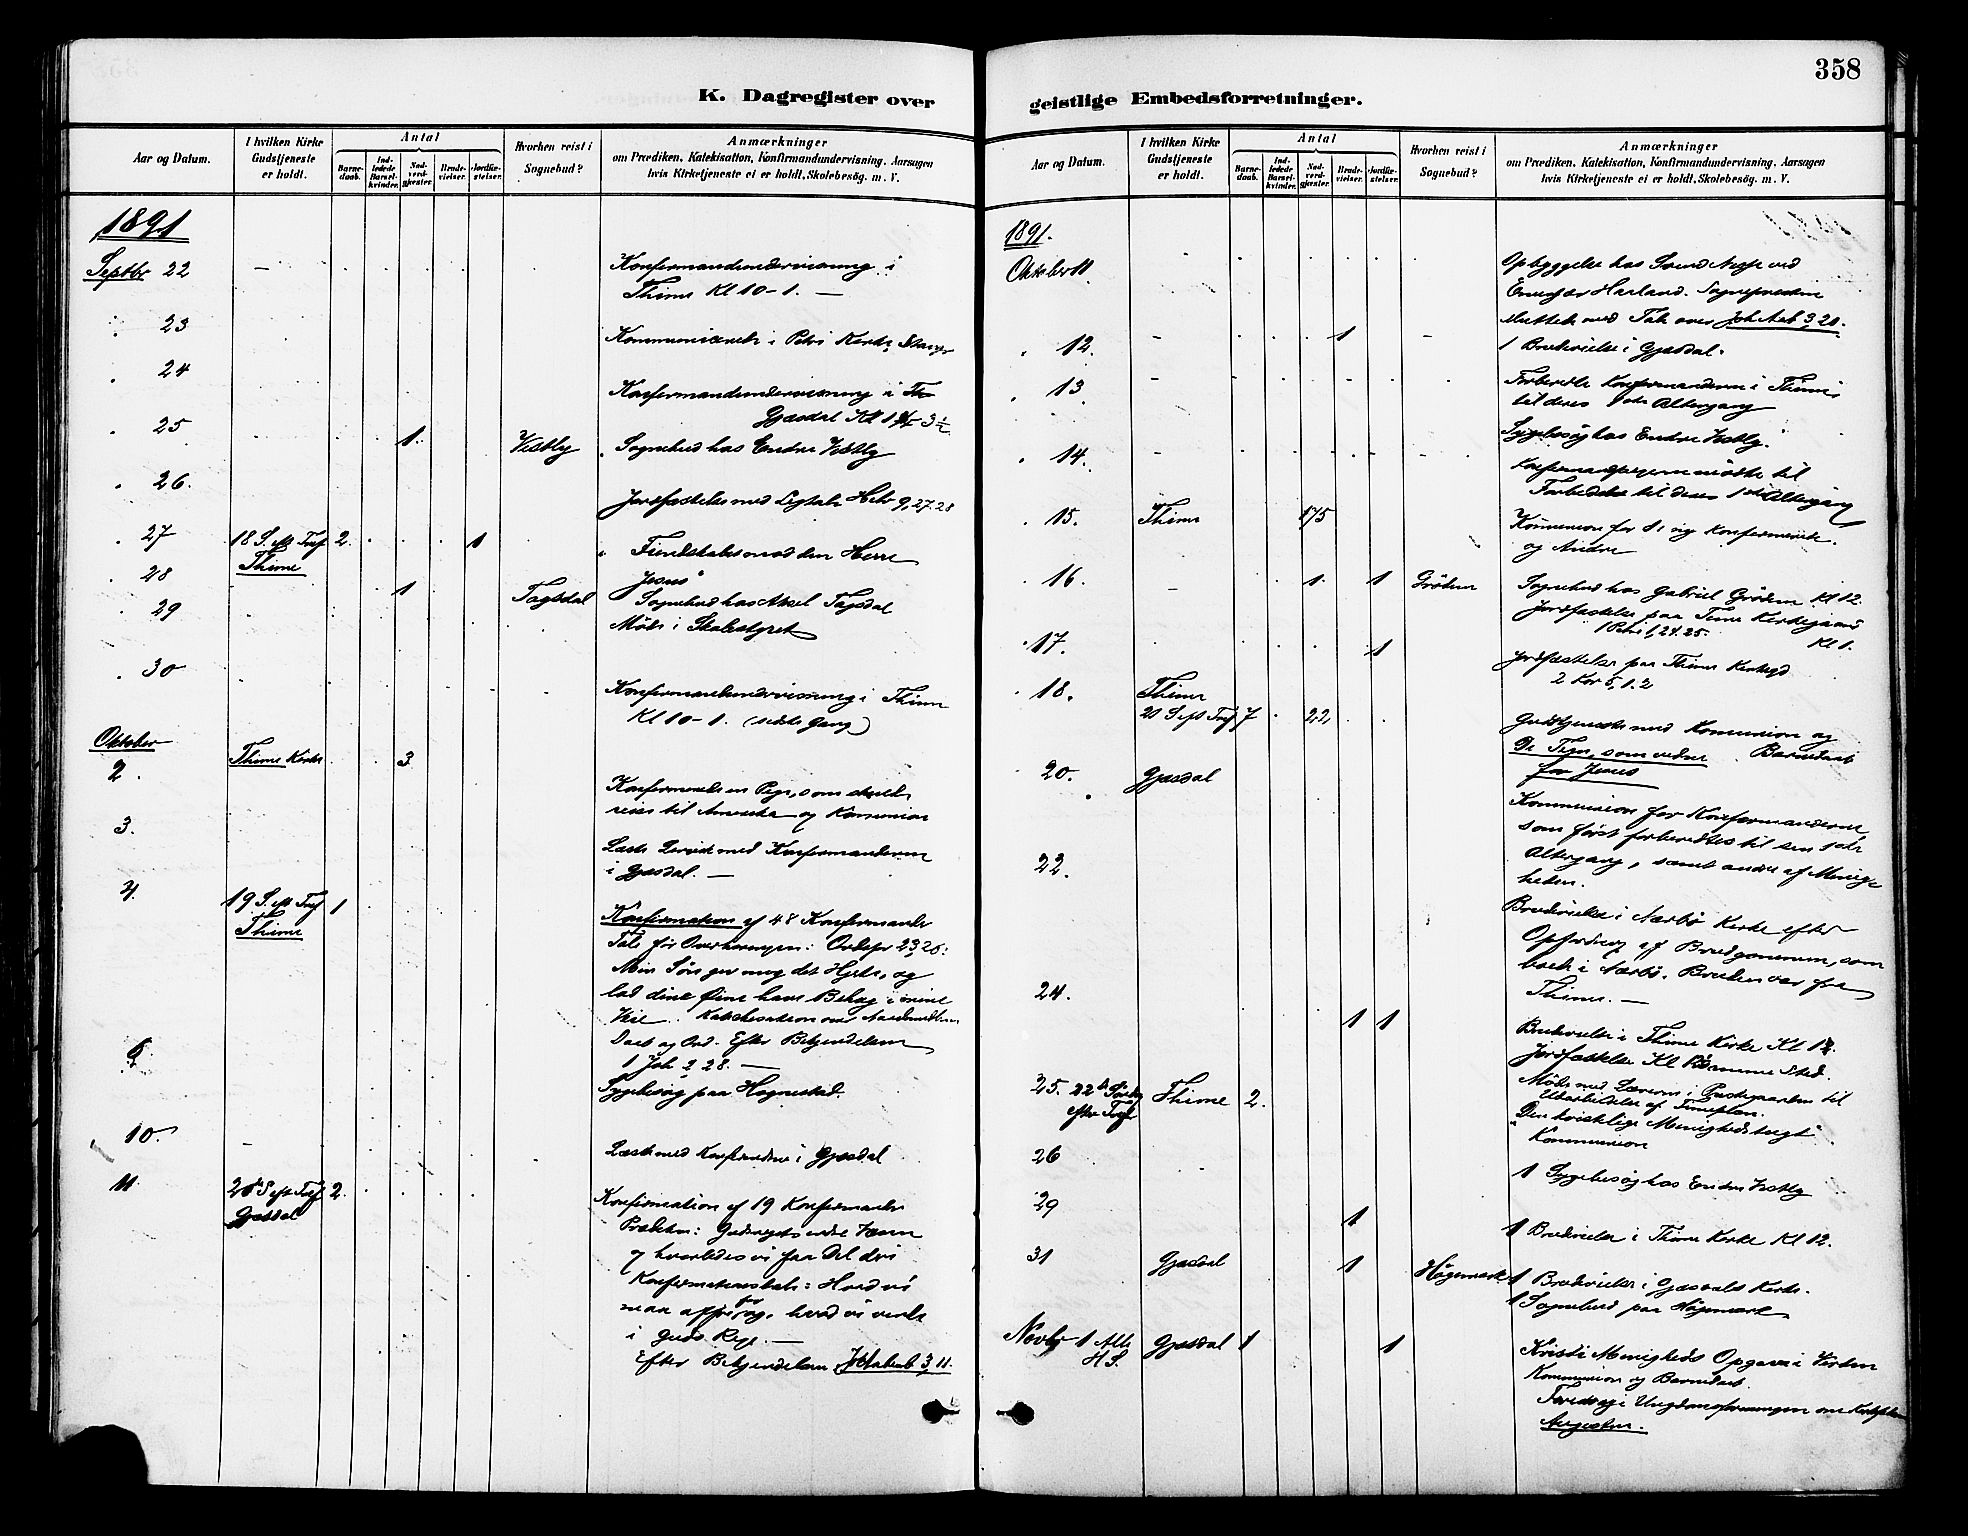 K. Dagregister over
Aar og Datum.
I hvilken Kirke Gudstjeneste er holdt.
Antal
Barnedaab.
Indledede Barselkvinder.
Nadverdgjester.
Brudevielser.
Jordfæstelser.
Hvorhen reist i Sognebud?
Anmærkninger
om Prædiken, Katekisation, Konfirmandundervisning, Aarsagen
hvis Kirketjeneste ei er holdt, Skolebesög. m. V.
1891
Septbr 22
Konfirmandundervisning i
Thime Kl 10-1. —
23
Kommunicerede i Petri Kirke, Stavgr
24
Konfirmandundervisning i
Gjæsdal Kl 3½
25
1
Vestly
Sognebud hos Endre Vestly
26.
Jordfæstelse med Ligtale Hebr 9, 27.28
27
18 S. eft Tref
2
1
Thime
Fiendskabet mod den Herre
Jesus"
28
1
Tagsdal
Sognebud hos Aksel Tagsdal
29
Möde i Skolestyret
30
Konfirmandundervisning i Thime
Kl 10-1. (sidste Gang)
Oktober
2
Thime Kirke
3
Konfirmerede en Pige, som skulde
reise til Amerika og Komunion
3.
Læste med Konfirmanderne
i Gjæsdal. —
4.
19 S. eft Tref
1
Thime
Konfirmation af 48 Konfirmander
Tale för Overhöringen: Ordspr 23,26:
Min Sön giv mig det Hjerte, og
lad dine Öine have Behag i mine
Veie. Katekisation over
Daab og Ord. Efter Bekjendelsen
1 Joh 2 28. —
9
Sygebesög paa Hognestad.
10.
Læste med Konfirmderne i Gjæsdal
11
2 S eft Tref
2.
Gjæsdal
Konfirmation af 19 Konfirmander
Prædiken:
og hvorledes vi faa Del deri
Konfirmationstale: Hvad vi
maa
i Guds Rige. —
Efter Bekjendelsen Joh Aab 3, 11.
358
geistlige Embedsforretninger.
Aar og Datum.
I hvilken Kirke Gudstjeneste er holdt.
Antal
Barnedaab.
Indledede Barselkvinder.
Nadverdgjester.
Brudevielser.
Jordfæstelser.
Hvorhen reist i Sognebud?
Anmærkninger
om Prædiken, Katekisation, Konfirmandundervisning, Aarsagen
hvis Kirketjeneste ei er holdt, Skolebesög. m. V.
1891.
Oktober 11
Opbyggelse hos Svend ved
Harland. Sognepresten
sluttede med Tale over Joh Aab 3,20.
12.
1
1 Brudevielse i Gjæsdal.
13
Forberedte Konfirmanderne i Thime
til deres 1ste Altergang
14.
Sygebesög hos Endre Vestly.
Konfirmandpigerne mödte til
Forberedelse til deres 1ste Altergang
15.
Thime
175
Komunion for de ny Konfirmerede
og Andre
16.
1
1
Grödem
Sognebud hos Gabriel Grödem Kl 12.
Jordfæstelse paa Time Kirkegaard
1 Petri 1, 24.25. Kl 1.
17.
1
Jordfæstelse paa Thime Kirkegd
2 Kor 5, 1.2
18.
Thime
21 S eft Tref
7
22
Gudstjeneste med Komunion og
Barnedaab
De Tegn, som vidne
for Jesus
20.
Gjæsdal
Kommunion for Konfirmanderne,
som först forberedtes til sin 1ste
Altergang, samt andre af Menig-
heden.
22.
Brudevielse i Nærbö Kirke efter
Opfordring af Brudgommen, som
boede i Nærbö. Bruden var fra
Thime. —
24.
1
1
Brudevielse i Thime Kirke Kl 12.
Jordfæstelse Kl Samme Sted.
Möde med Lærerne i Prestegaarden til
Udarbeidelse af Timeplan.
25. 22de Söndg
efter Tref
Thime
2.
"Den kristelige Menighedstugt"
Kommunion
26
1 Sygebesög hos Endre Vestly
29
1
1 Brudevielse i Thime Kirke Kl 12.
31
Gjæsdal
1
Högemark
1 Brudevielse i Gjæsdals Kirke.
1 Sognebud paa Högemark
Novbr 1 Alle
H. S.
Gjæsdal
1
1
Kristi Menigheds Opgave i Verden
Kommunion og Barnedaab.
Foredrag i Ungdomsforeningen om Kirkefader
Augustin.